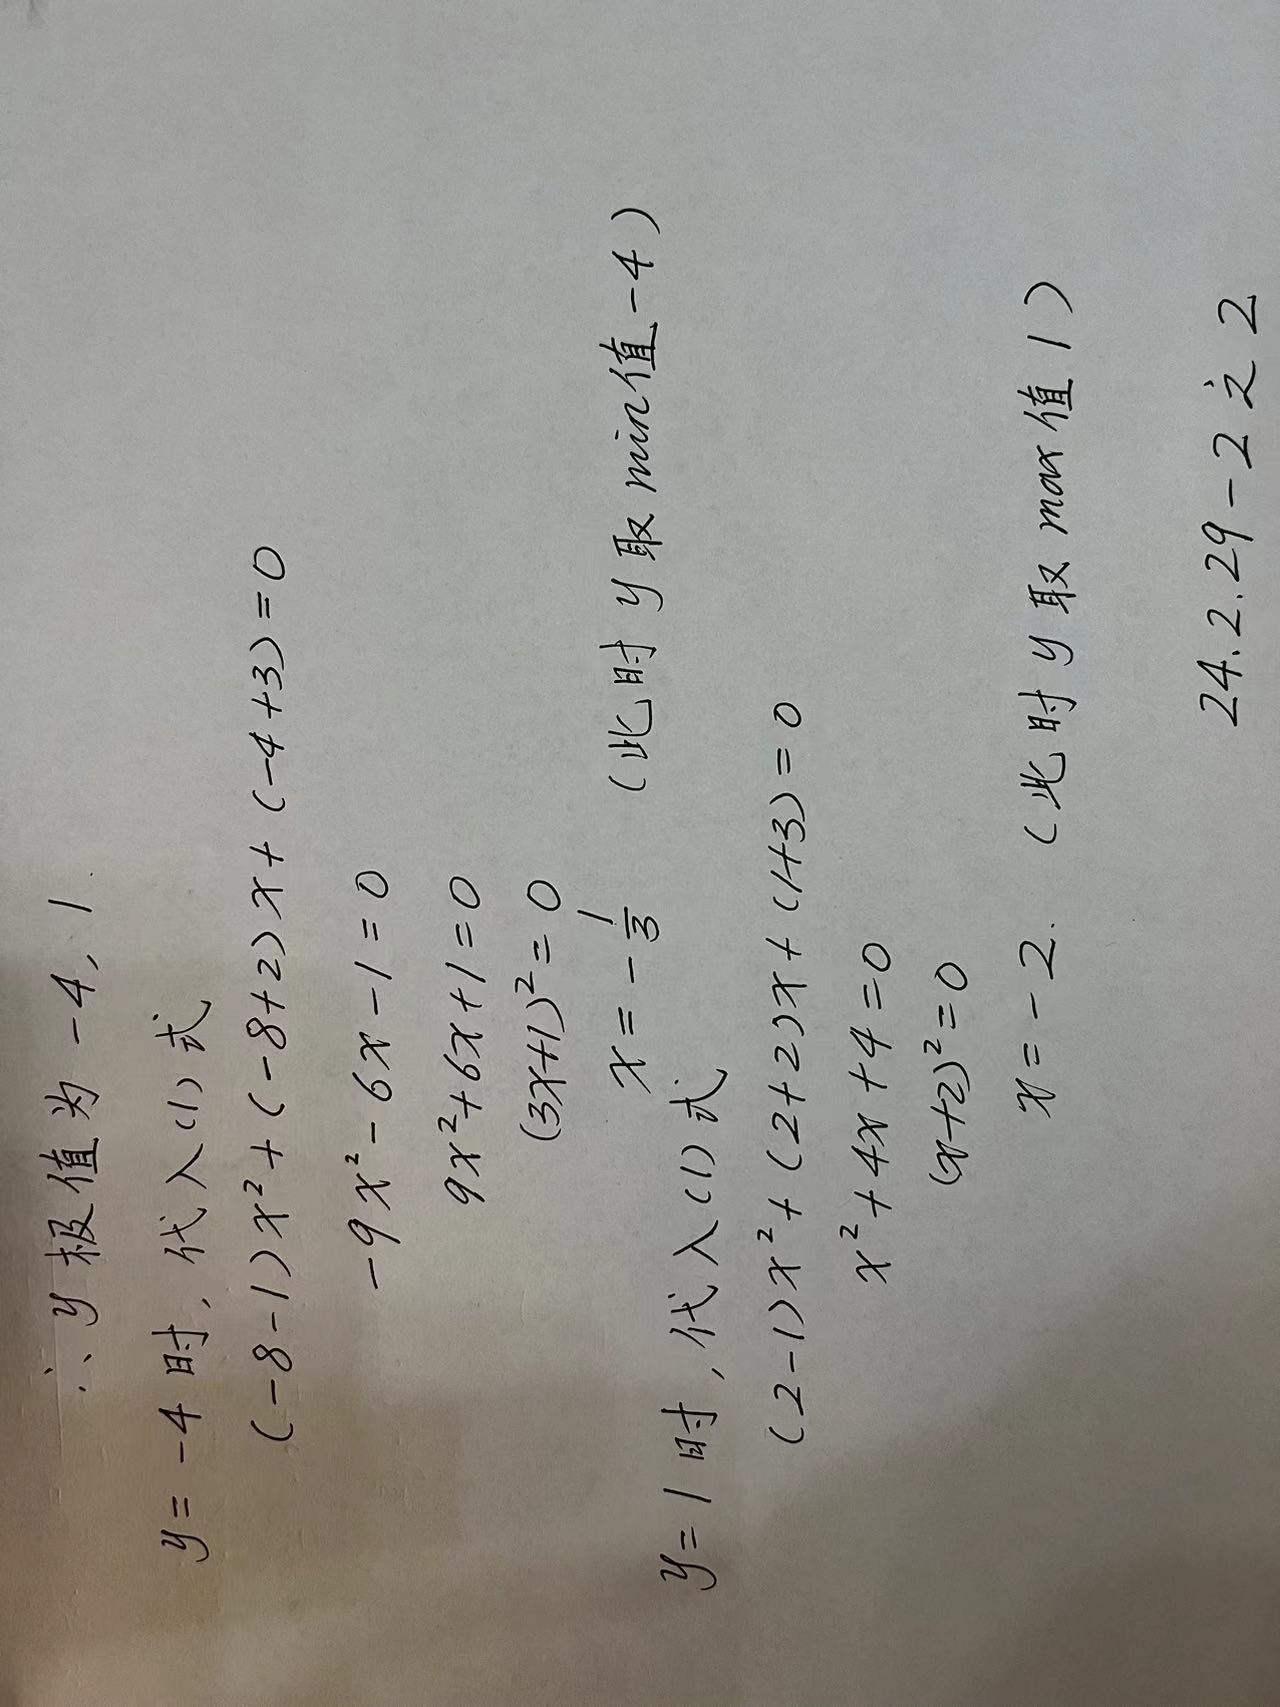 ∴ y极值为 -4, 1.
y=-4时, 代入(1)式
(-8-1)x²+(-8+2)x+(-4+3)=0
-9x²-6x-1=0
9x²+6x+1=0
(3x+1)²=0
x=-1/3 (此时y取min值-4)
y=1时, 代入(1)式
(2-1)x²+(2+2)x+(1+3)=0
x²+4x+4=0
(x+2)²=0
x=-2. (此时y取max值1)
24.2.29-2之2